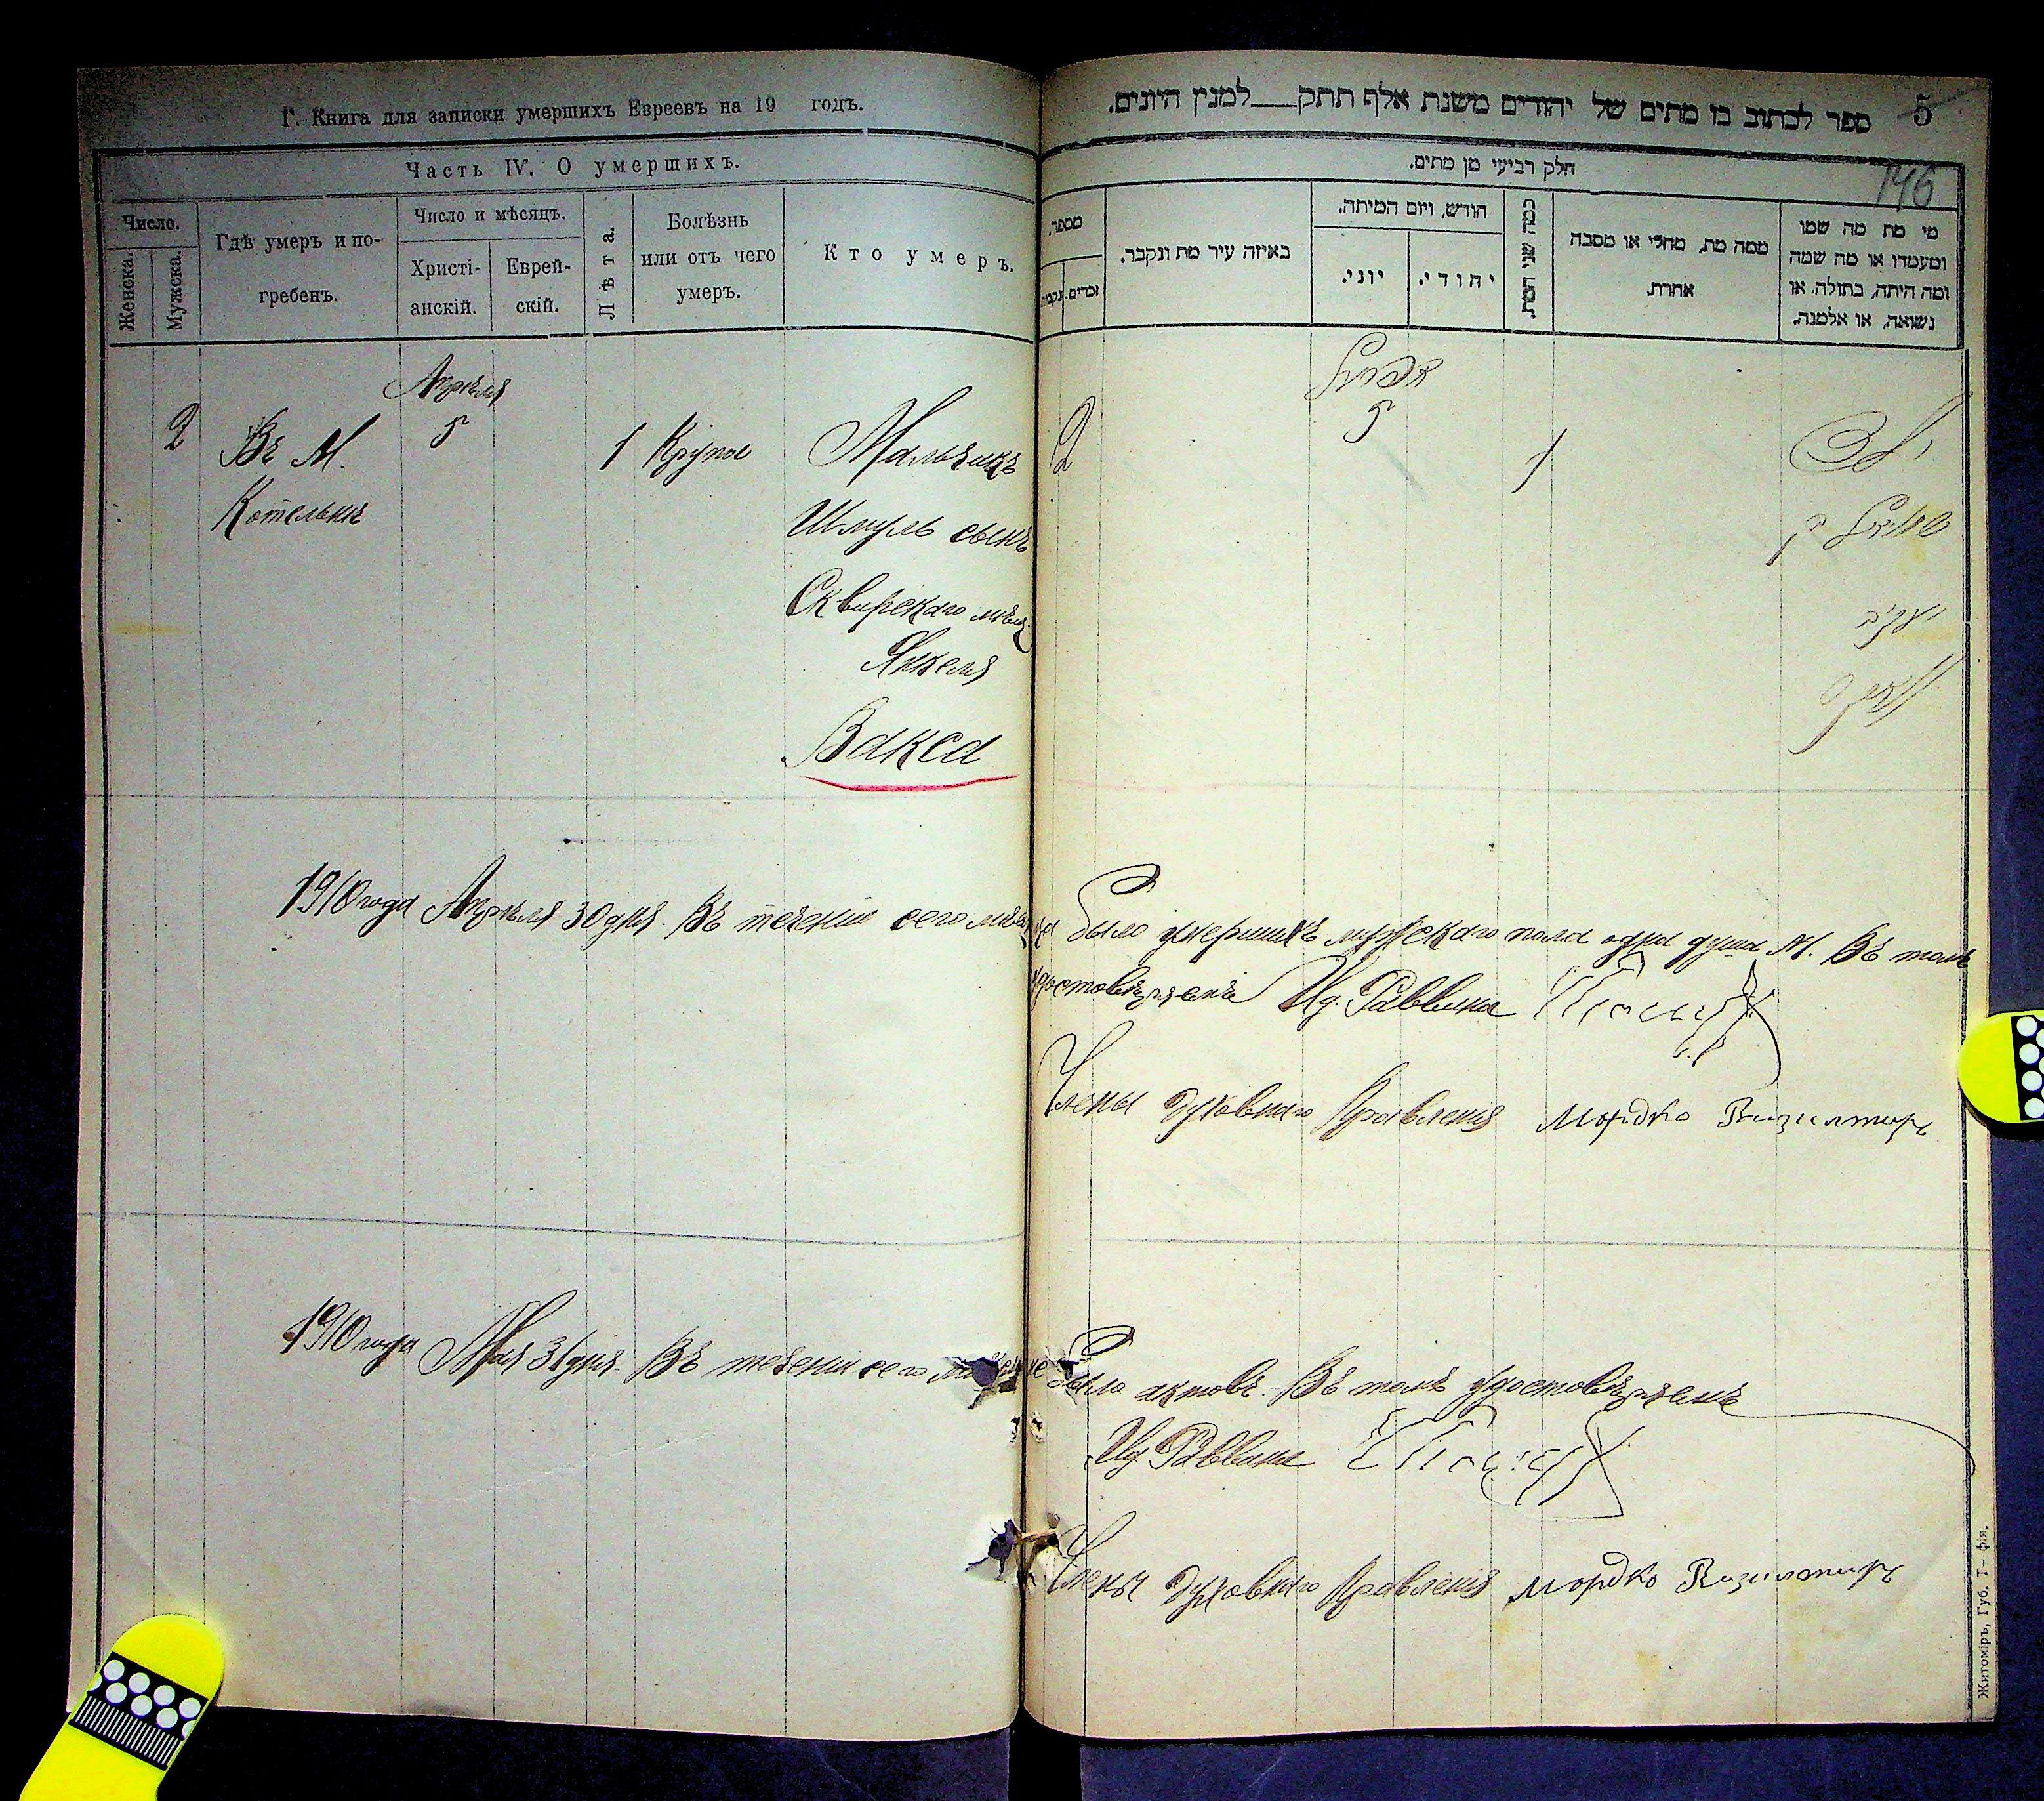 Г. Книга для записки умершихъ Евреевъ на 19 годъ.
Часть IV. О умершихъ.
Число.
Женска.
Мужска.
Гдѣ умеръ и по-
гребенъ.
Число и мѣсяцъ.
Христі-
анскій.
Еврей-
скій.
Лѣта.
Болѣзнь
или отъ чего
умеръ.
Кто умеръ.
Апрѣля
2
Въ М.
Котельнѣ
5
1
Крупа
Мальчикъ
Шмуль сынъ
Сквирскаго мѣщ.
Янкеля
Вакса
ספר לכתוב בו מתים של יהודים משנת אלף תתק__למנין היונים.
5
146
חלק רביעי מן מתים.
מספר.
זכרים.
נקבות.
באיזה עיר מת ונקבר.
חודש, ויום המיתה.
יוני.
יהודי.
כמה שני המת.
ממה מת, מחלי או מסבה
אחרת.
מי מת מה שמו
ומעמדו או מה שמה
ומה היתה, בתולה, או
נשואה, או אלמנה.
אפריל
2
5
1
ילד
שמואל בן
יעקב
וואקס
1910 года Апрѣля 30 дня. Въ теченіе сего мѣсяца было умершихъ мужскаго пола одна душа М. Въ томъ
удостовѣряемъ И.д. Раввина
Члены Духовнаго Правленія Мордко
1910 года Мая 31 дня. Въ теченіи сего не было актовъ. Въ томъ удостовѣряемъ
И.д. Раввина
Члены Духовнаго Правленія Мордко
Житоміръ, Губ. Т—фія.